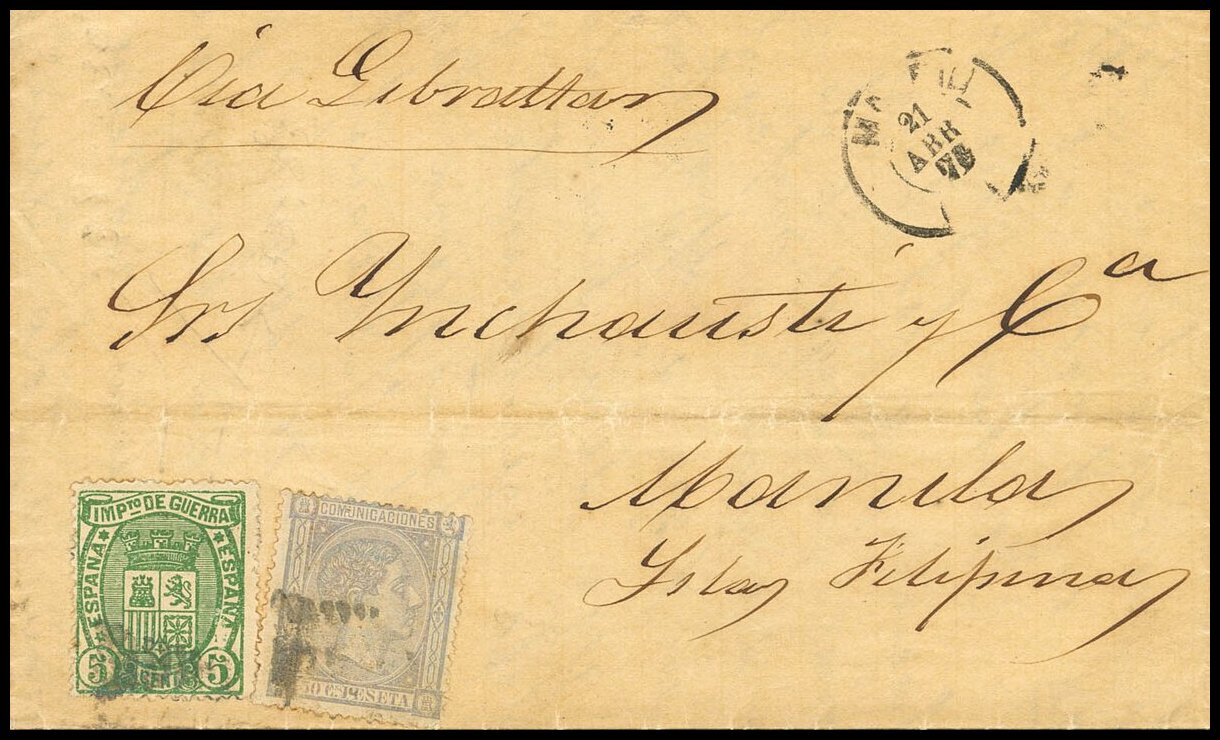 Via Gibraltar
21
ABR
Srs Ynchausti y Cª
Manila
Islas Filipinas
IMPTO DE GUERRA
ESPAÑA ESPAÑA
5 5
COMUNICACIONES
PESETA